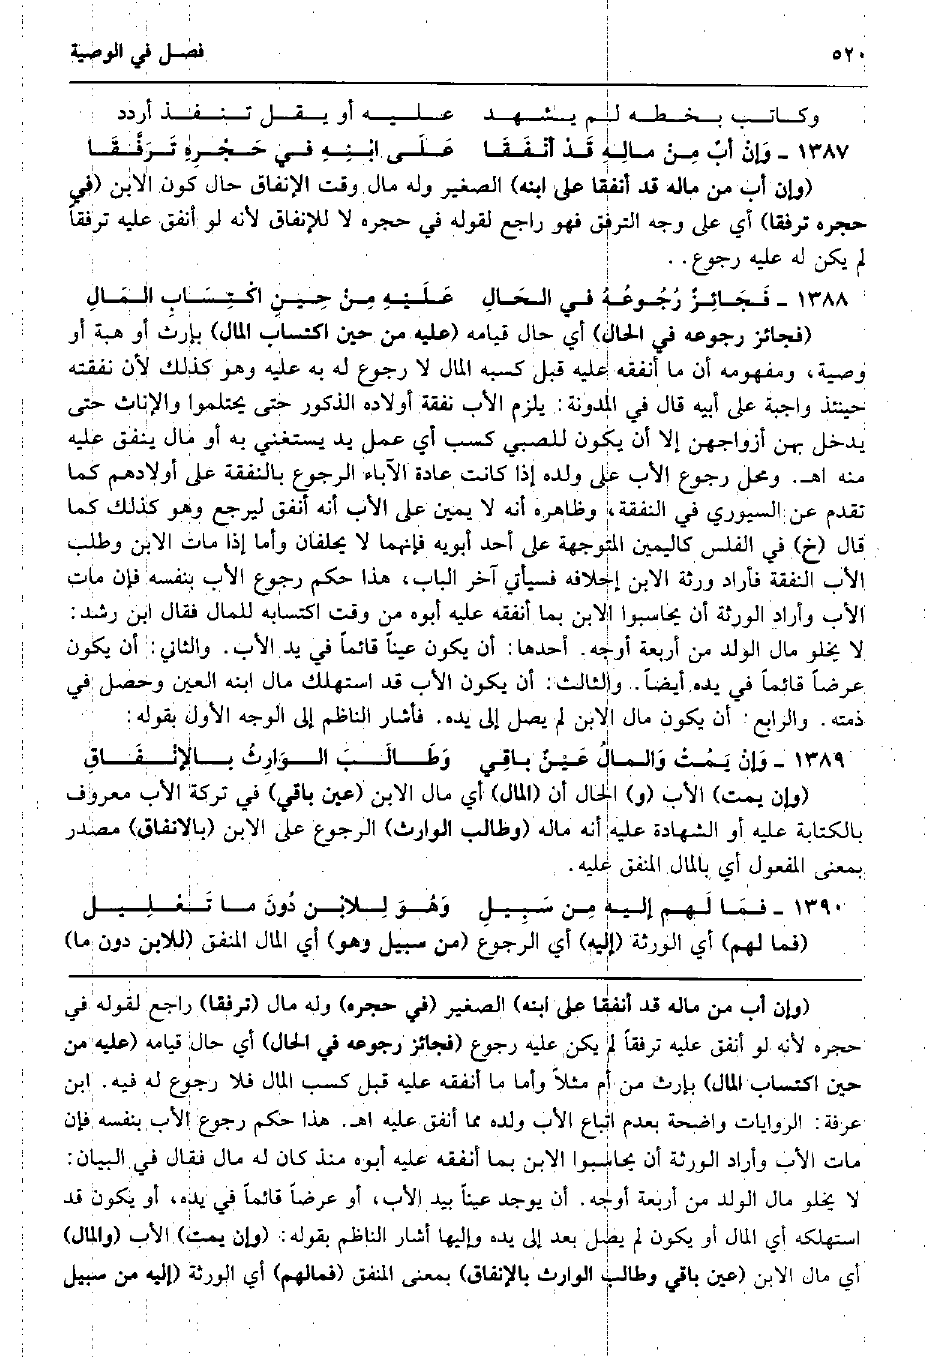 ٥٢٠ فصل في الوصية
وكاتب بخطه لم يشهد عليه أو يقل تنفذ أردد
١٣٨٧ - وَإنْ أبٌ مِنْ مالِهِ قَدْ أنْفَقَا عَلَى ابْنِهِ في حَجْرِهِ تَرَفُّقَا
(وإن أب من ماله قد أنفقا على ابنه) الصغير وله مال وقت الإنفاق حال كون الابن (في
حجره ترفقا) أي على وجه الترفق فهو راجع لقوله في حجره لا للإنفاق لأنه لو أنفق عليه ترفقاً
لم يكن له عليه رجوع. .
١٣٨٨ - فَجَائِزٌ رُجُوعُهُ في الحَالِ عَلَيْهِ مِنْ حِينِ اكْتِسَابِ المَالِ
(فجائز رجوعه في الحال) أي حال قيامه (عليه من حين اكتساب المال) بإرث أو هبة أو
وصية، ومفهومه أن ما أنفقه عليه قبل كسبه المال لا رجوع له به عليه وهو كذلك لأن نفقته
حينئذ واجبة على أبيه قال في المدونة: يلزم الأب نفقة أولاده الذكور حتى يحتلموا والإناث حتى
يدخل بهن أزواجهن إلا أن يكون للصبي كسب أي عمل يد يستغني به أو مال ينفق عليه
منه اهـ. ومحل رجوع الأب على ولده إذا كانت عادة الآباء الرجوع بالنفقة على أولادهم كما
تقدم عن السيوري في النفقة، وظاهره أنه لا يمين على الأب أنه أنفق ليرجع وهو كذلك كما
قال (خ) في الفلس كاليمين المتوجهة على أحد أبويه فإنهما لا يحلفان وأما إذا مات الابن وطلب
الأب النفقة فأراد ورثة الابن إحلافه فسيأتي آخر الباب، هذا حكم رجوع الأب بنفسه فإن مات
الأب وأراد الورثة أن يحاسبوا الابن بما أنفقه عليه أبوه من وقت اكتسابه للمال فقال ابن رشد:
لا يخلو مال الولد من أربعة أوجه. أحدها: أن يكون عيناً قائماً في يد الأب. والثاني: أن يكون
عرضاً قائماً في يده أيضاً. والثالث: أن يكون الأب قد استهلك مال ابنه العين وحصل في
ذمته. والرابع: أن يكون مال الابن لم يصل إلى يده. فأشار الناظم إلى الوجه الأول بقوله:
١٣٨٩ - وَإنْ يَمُتْ وَالمالُ عَيْنٌ بَاقِي وَطَالَبَ الوَارِثُ بِالإنْفَاقِ
(وإن يمت) الأب (و) الحال أن (المال) أي مال الابن (عين باقي) في تركة الأب معروف
بالكتابة عليه أو الشهادة عليه أنه ماله (وطالب الوارث) الرجوع على الابن (بالانفاق) مصدر
بمعنى المفعول أي بالمال المنفق عليه.
١٣٩٠ - فَمَا لَهم إليهِ مِن سَبِيلِ وَهُوَ لِلابْنِ دُونَ ما تَعْلِيلِ
(فما لهم) أي الورثة (إليه) أي الرجوع (من سبيل وهو) أي المال المنفق (للابن دون ما)
(وإن أب من ماله قد أنفقا على ابنه) الصغير (في حجره) وله مال (ترفقا) راجع لقوله في
حجره لأنه لو أنفق عليه ترفقاً لم يكن عليه رجوع (فجائز رجوعه في الحال) أي حال قيامه (عليه من
حين اكتساب المال) بإرث من أم مثلاً وأما ما أنفقه عليه قبل كسب المال فلا رجوع له فيه. ابن
عرفة: الروايات واضحة بعدم اتباع الأب ولده مما أنفق عليه اهـ. هذا حكم رجوع الأب بنفسه فإن
مات الأب وأراد الورثة أن يحاسبوا الابن بما أنفقه عليه أبوه منذ كان له مال فقال في البيان:
لا يخلو مال الولد من أربعة أوجه. أن يوجد عيناً بيد الأب، أو عرضاً قائماً في يده، أو يكون قد
استهلكه أي المال أو يكون لم يصل بعد إلى يده وإليها أشار الناظم بقوله: (وإن يمت) الأب (والمال)
أي مال الابن (عين باقي وطالب الوارث بالإنفاق) بمعنى المنفق (فمالهم) أي الورثة (إليه من سبيل